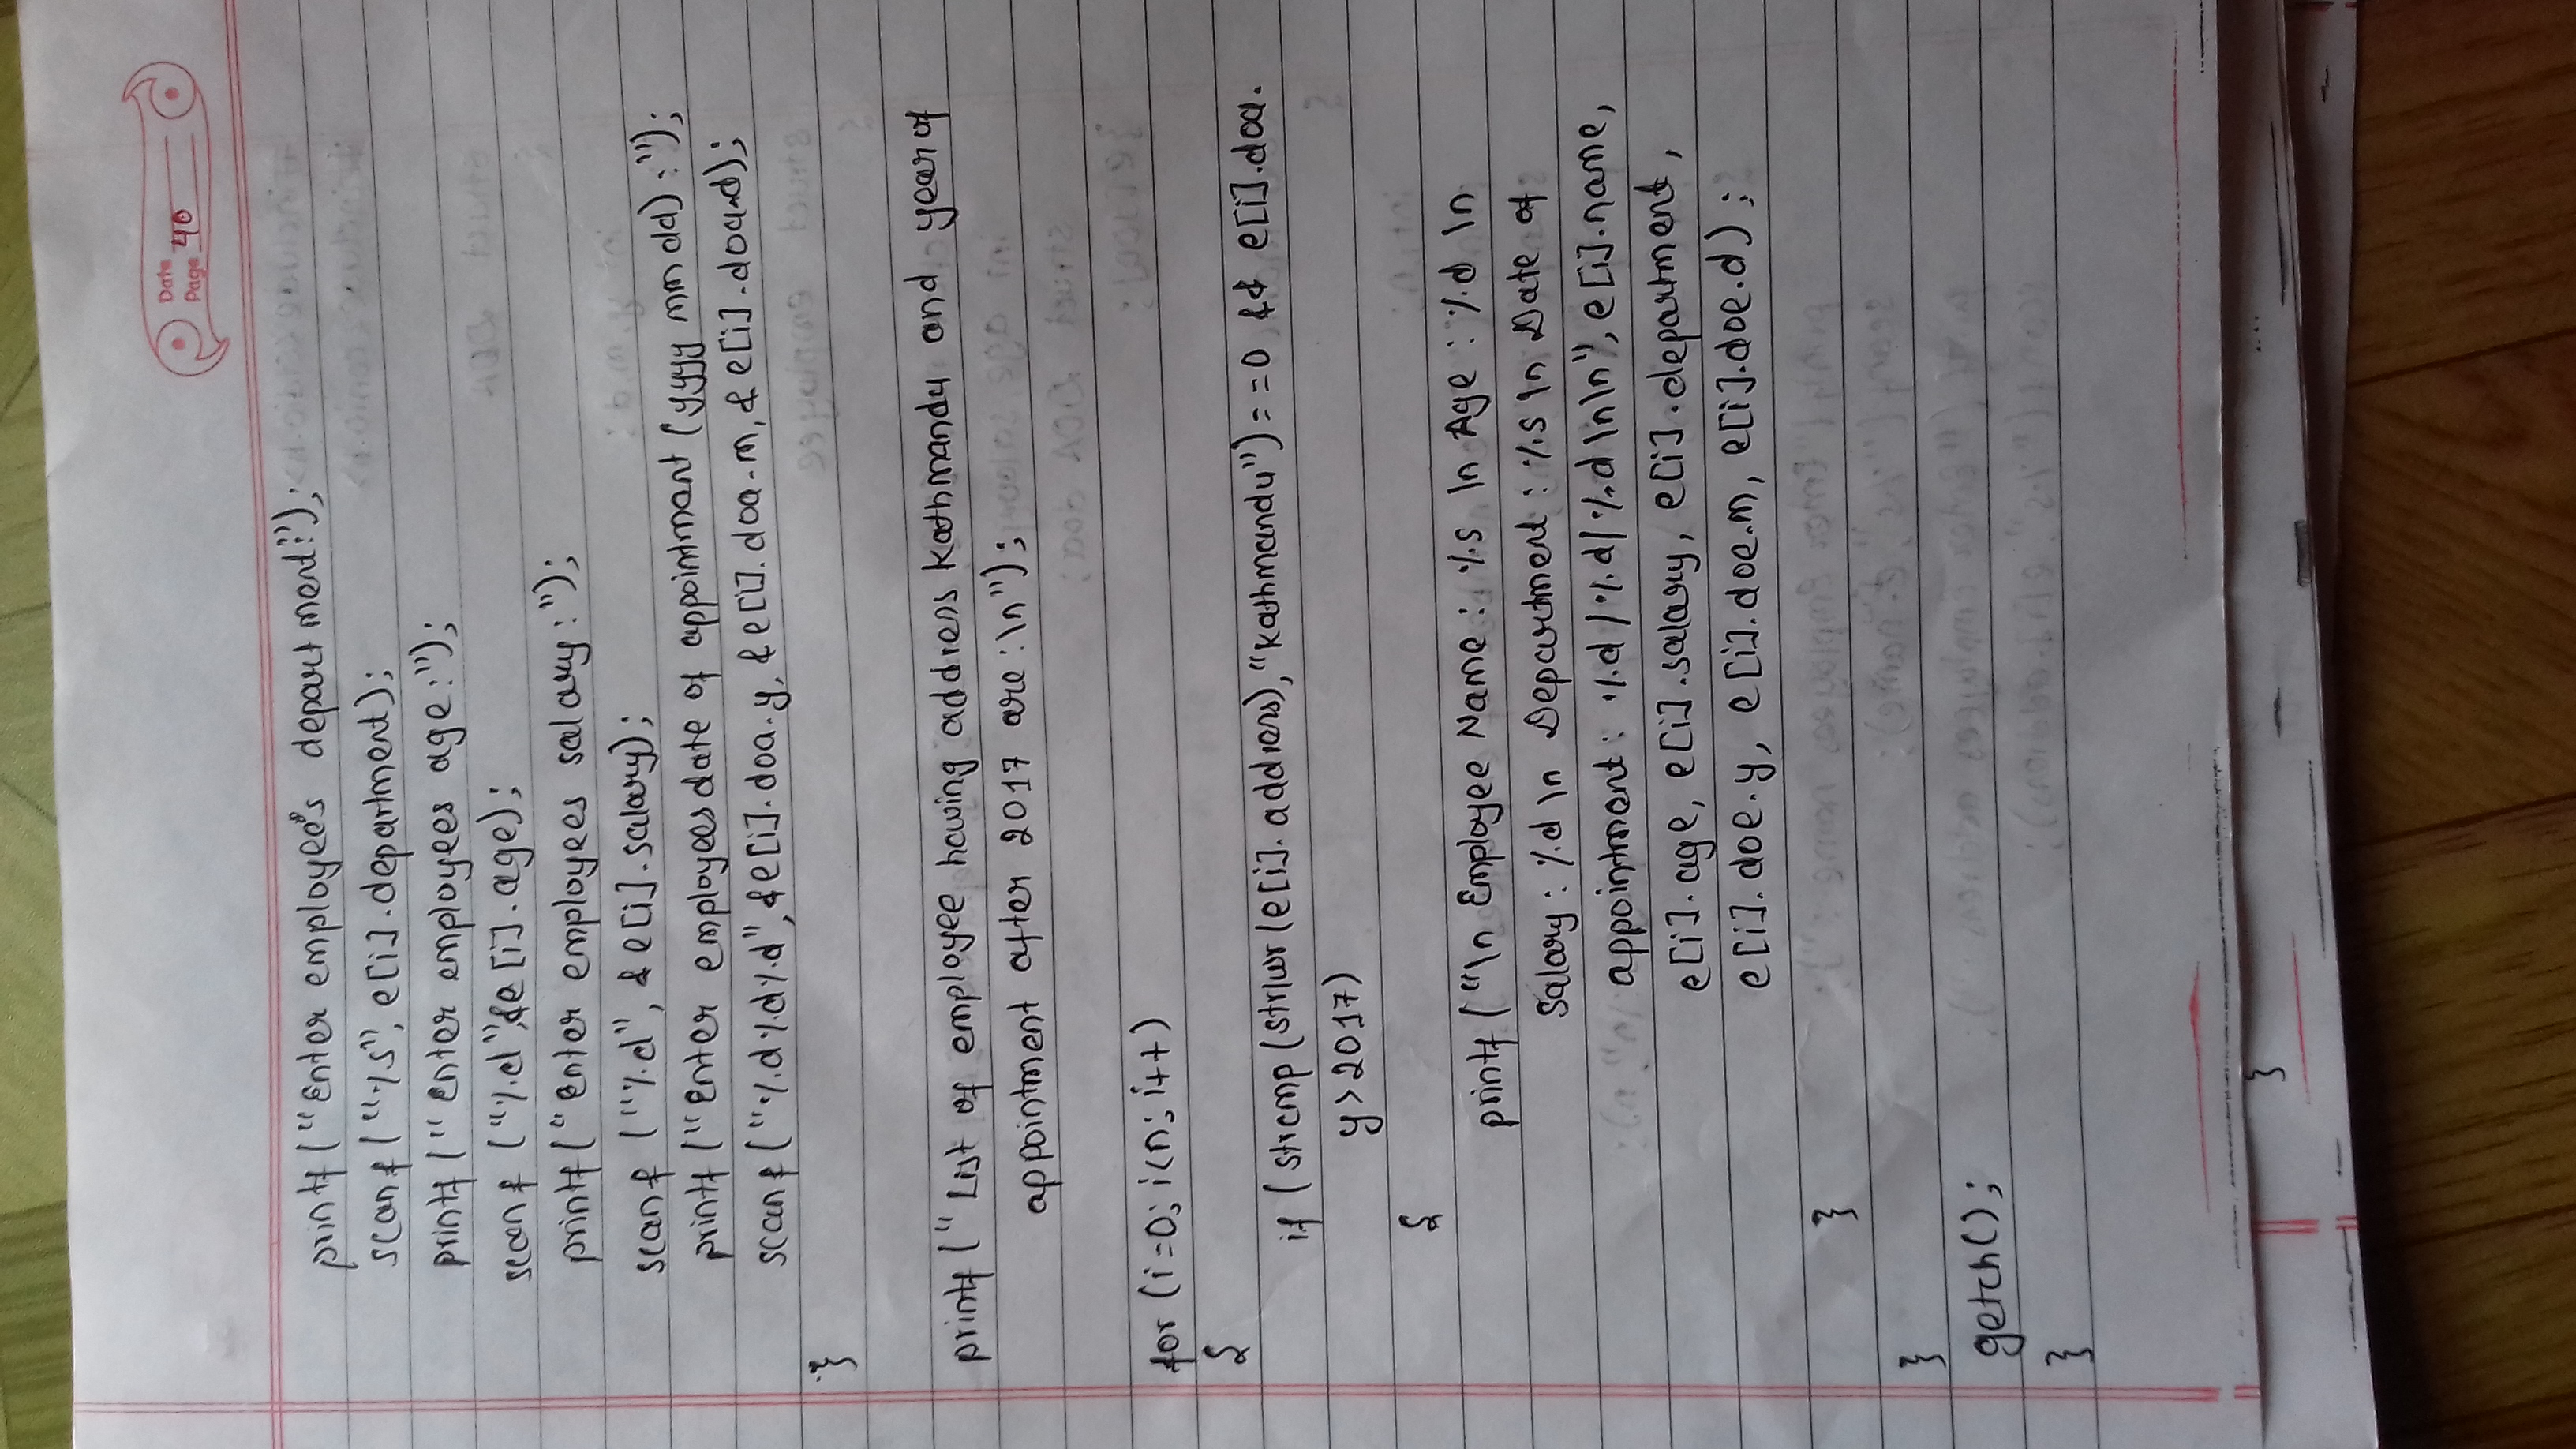 Date
Page 40
printf ("Enter employee's department:");
scanf ("%s", e[i].department);
printf ("Enter employees age:");
scanf ("%d",&e[i].age);
printf ("Enter employees salary:");
scanf ("%d", &e[i].salary);
printf ("Enter employees date of appointment (yyyy mm dd):");
scanf ("%d%d%d", &e[i].doa.y, &e[i].doa.m, &e[i].doa.d);
}
printf ("List of employee having address Kathmandu and year of
appointment after 2017 are:\n");
for (i=0; i<n; i++)
{
if (strcmp (strlwr (e[i].address), "kathmandu") ==0 && e[i].doa.
y>2017)
{
printf ("\n Employee Name : %s \n Age : %d \n
Salary : %d \n Department : %s \n Date of
appointment : %d/%d/%d\n\n", e[i].name,
e[i].age, e[i].salary, e[i].department,
e[i].doe.y, e[i].doe.m, e[i].doe.d);
}
}
getch();
}
}